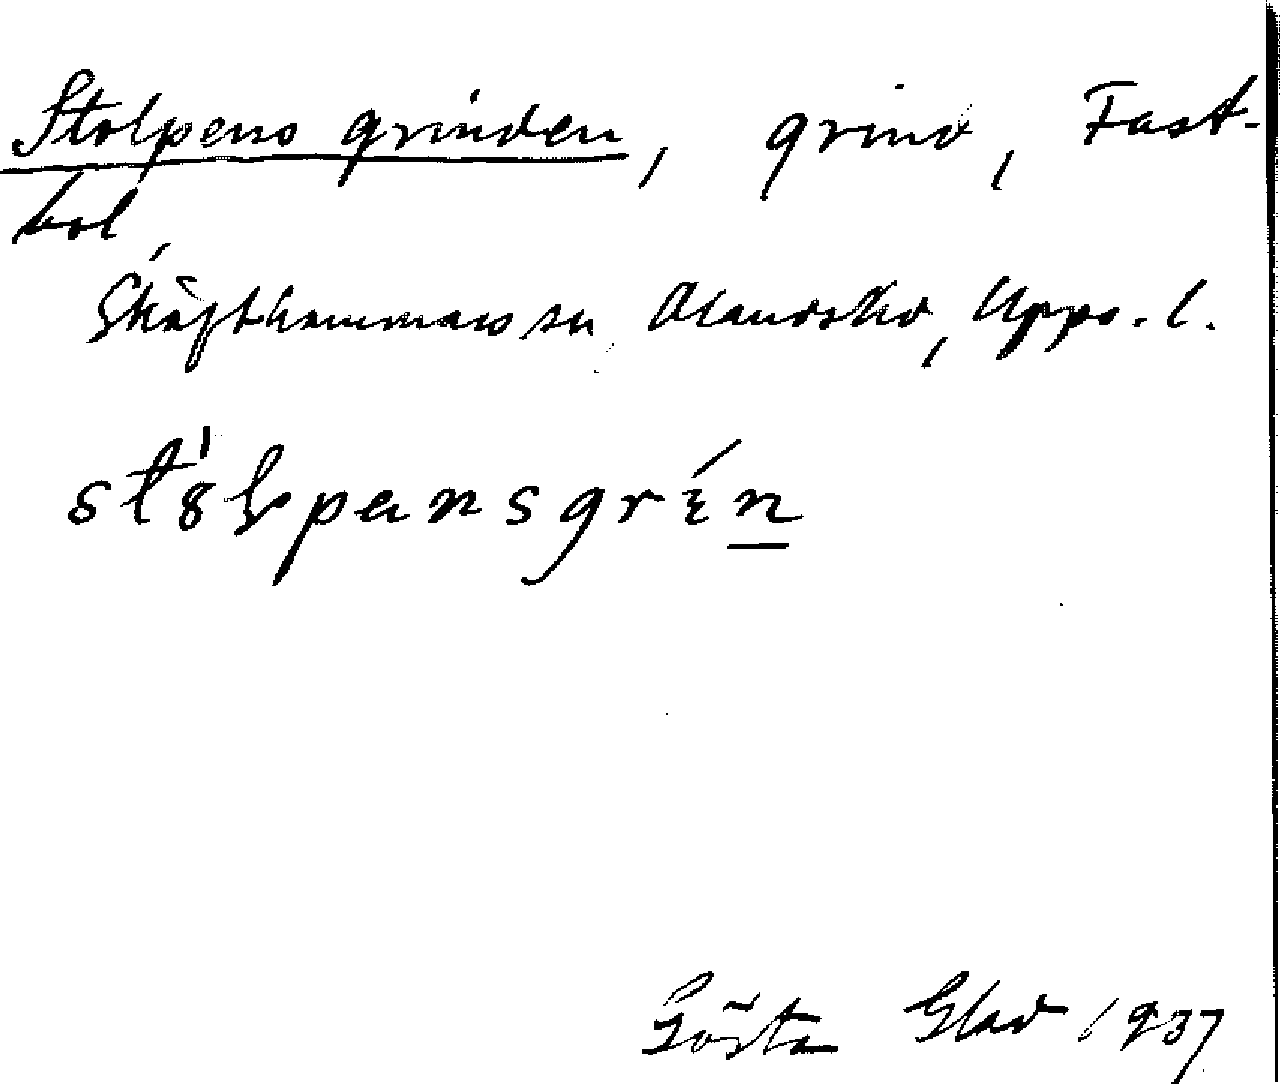 Stolpens grinden, grind, Fast-
bol,
Skäfthammars sn Olandshd, Upps. l.
stòlpansgrín
Gösta Glad 1937